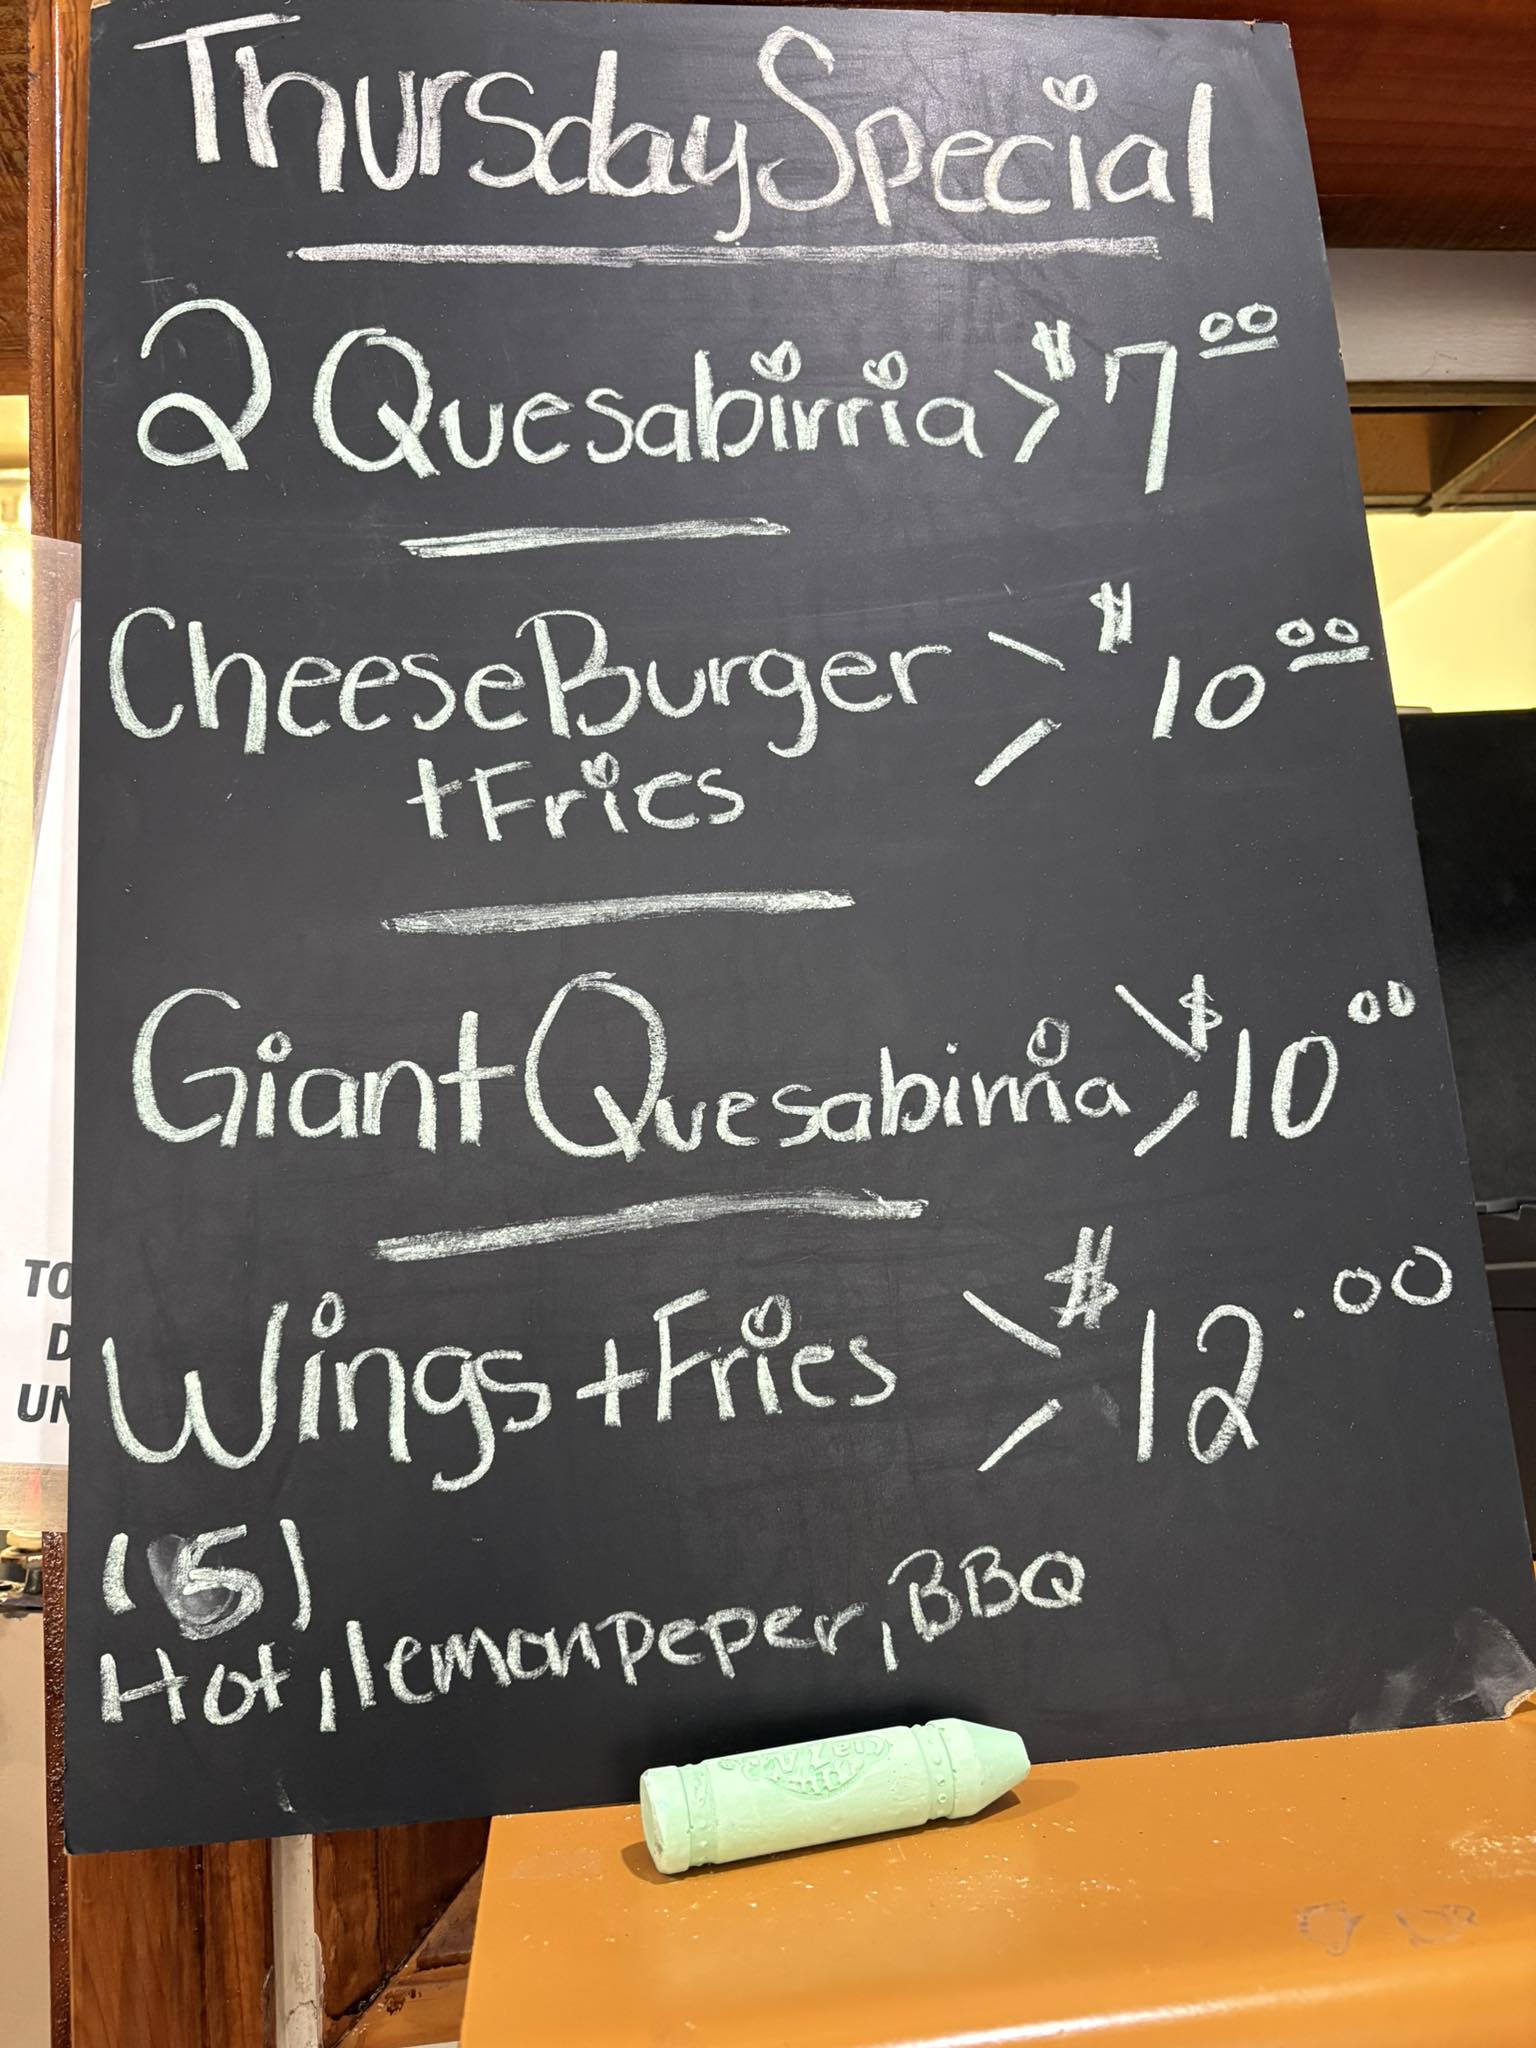 Thursday Special
2 Quesabirria > $7.00
Cheese Burger > $10.00
+Fries
Giant Quesabirria > $10.00
Wings + Fries > $12.00
(5)
Hot, lemonpeper, BBQ
TO
D
UN